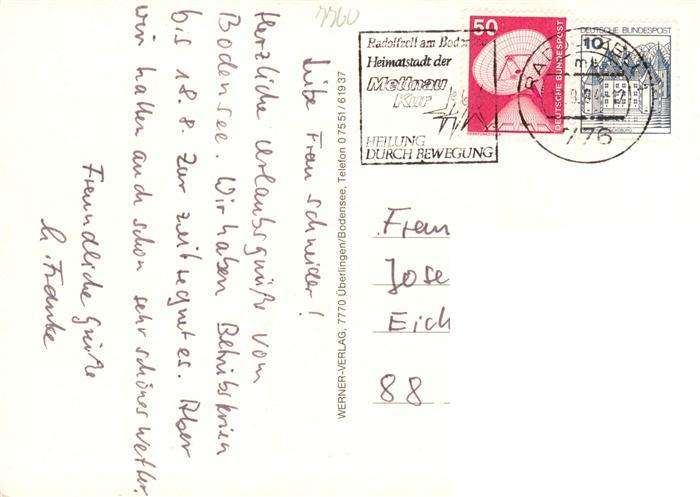 3360
Liebe Frau Schneider!
Herzliche Urlaubsgrüße vom
Bodensee. Wir haben Betriebsferien
bis 18.8. Zur Zeit regnet es. Aber
wir hatten auch schon sehr schönes Wetter.
Freundliche Grüße
h. Franke
WERNER-VERLAG, 7770 Überlingen/Bodensee, Telefon 07551/61937
Radolfzell am Bodensee
Heimatstadt der
Mettnau
Kur
HEILUNG
DURCH BEWEGUNG
50
DEUTSCHE BUNDESPOST
DEUTSCHE BUNDESPOST
10
776
Frau
Jose
Eich
88